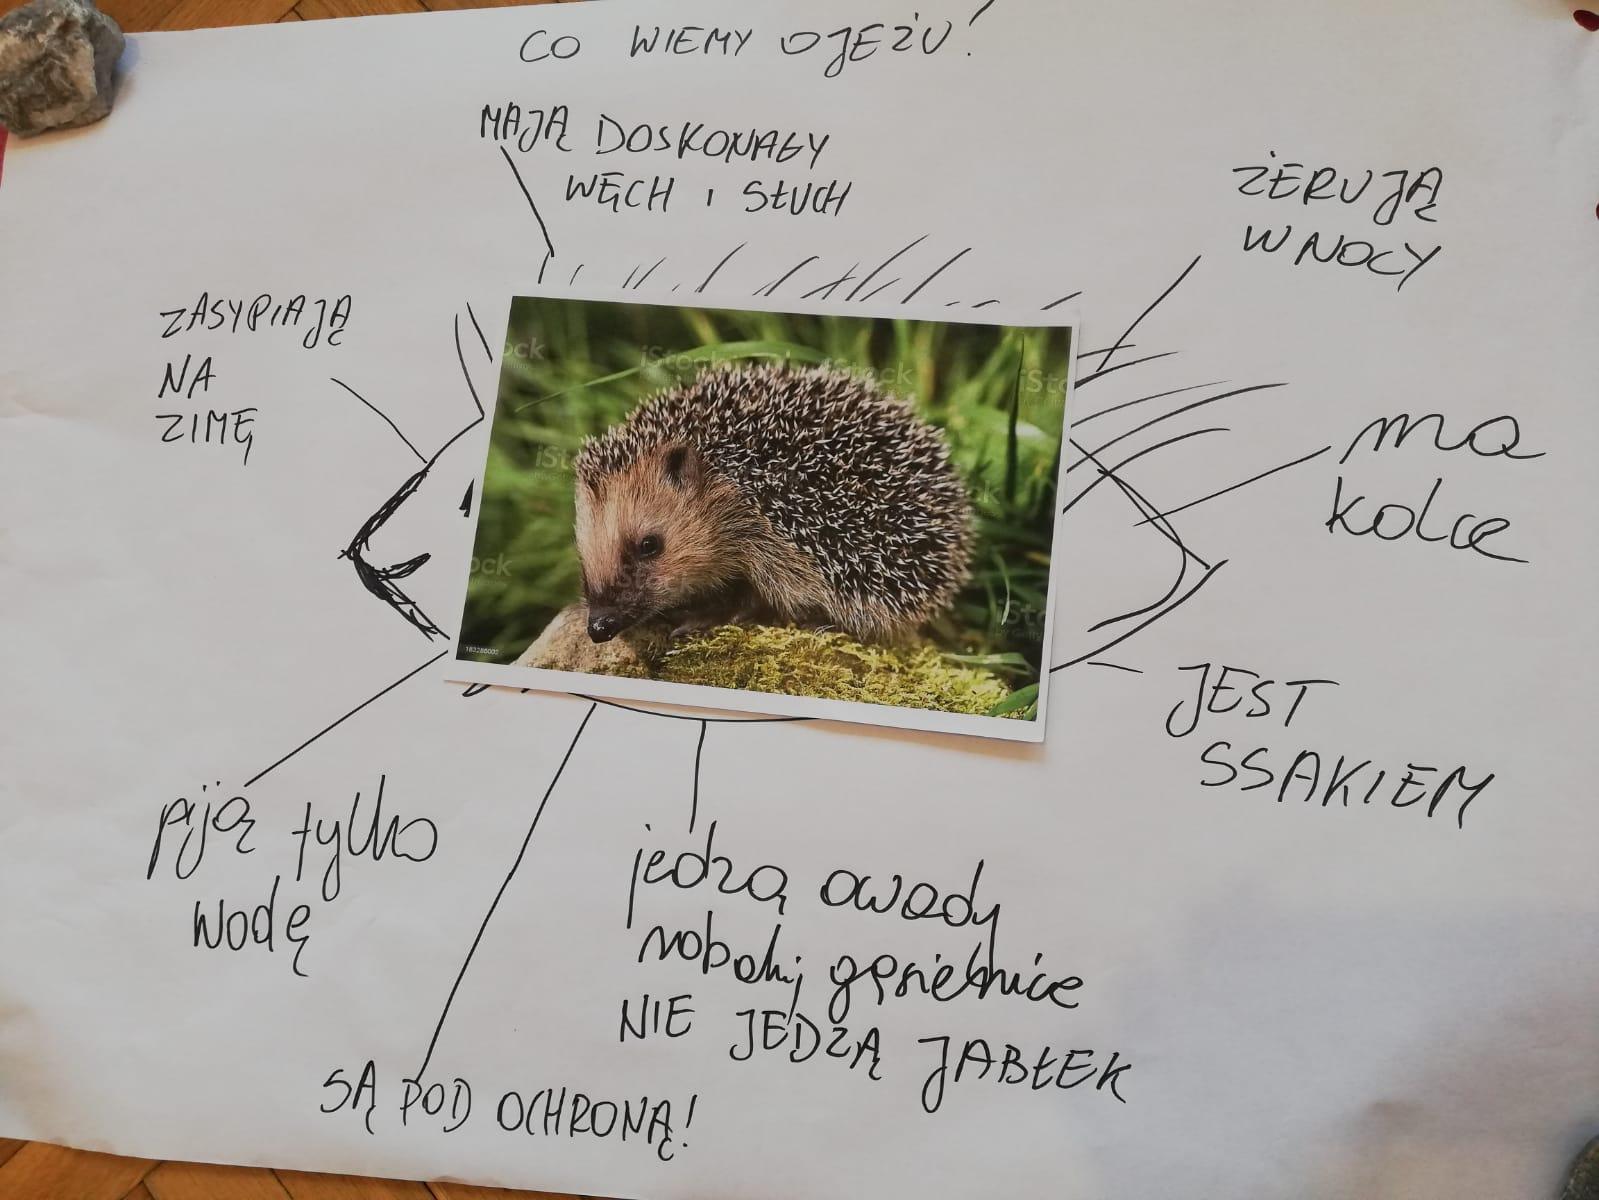 CO WIEMY O JEŻU!
MAJĄ DOSKONAŁY
WĘCH I SŁUCH
ŻERUJĄ
W NOCY
ZASYPIAJĄ
NA
ZIMĘ
ma
kolce
JEST
SSAKIEM
piją tylko
wodę
jedzą owady
robaki gąsienice
NIE JEDZĄ JABŁEK
SĄ POD OCHRONĄ!
iStock